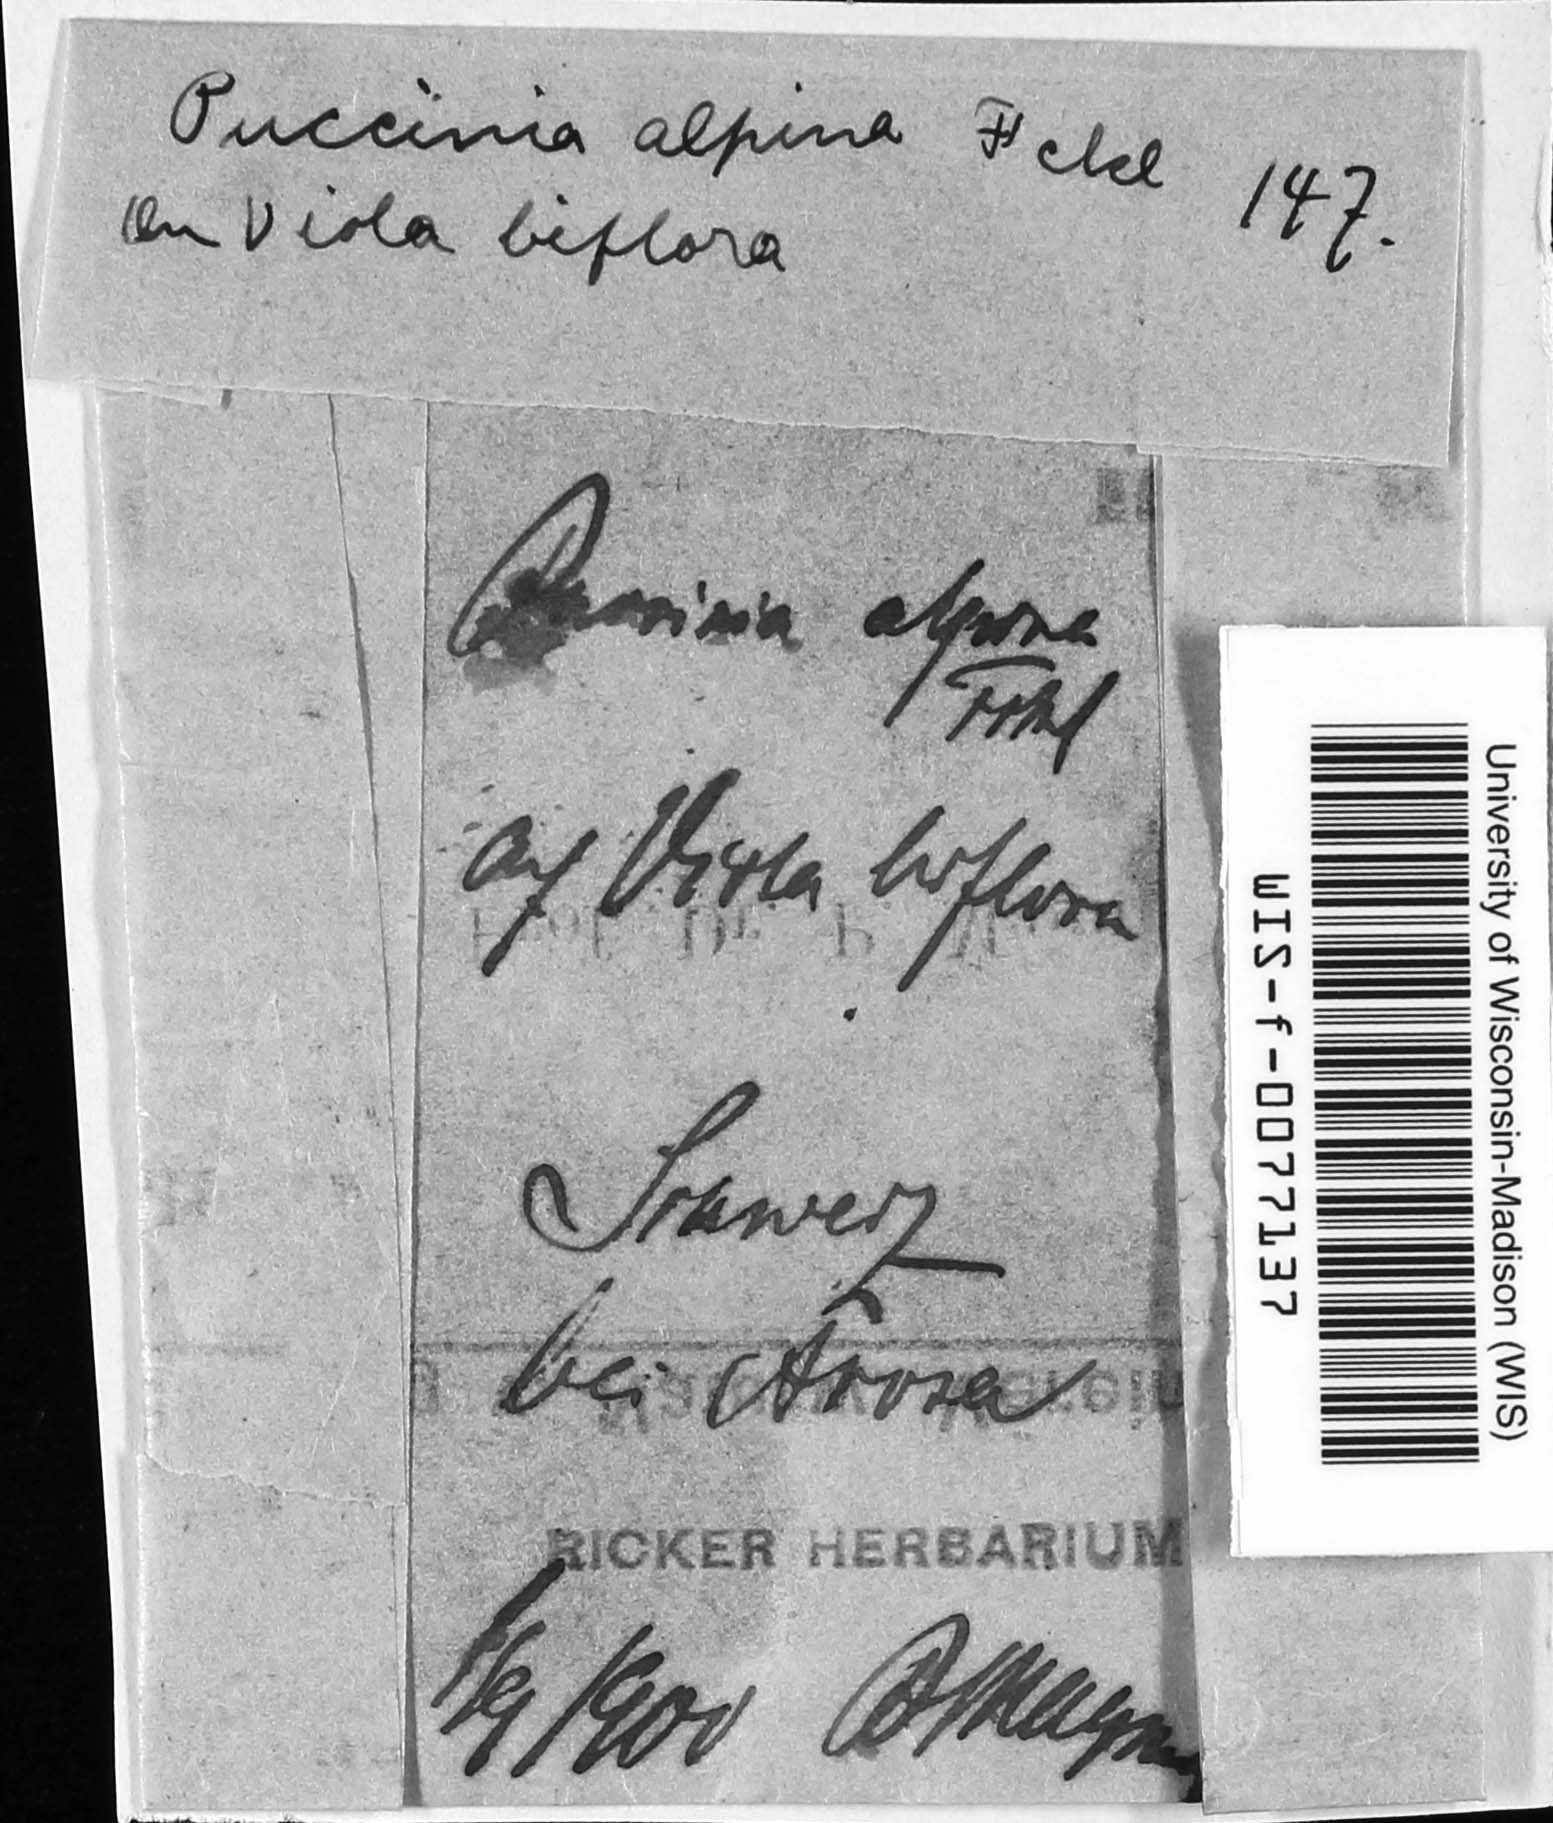 Puccinia alpina Fckl 147.
On Viola biflora
Puccinia alpina
Fckl
auf Viola biflora
Prof. Dr. P. M
bei Arosa
RICKER HERBARIUM
1/9 1900 P Magnus
University of Wisconsin-Madison (WIS)
WIS-f-0077137